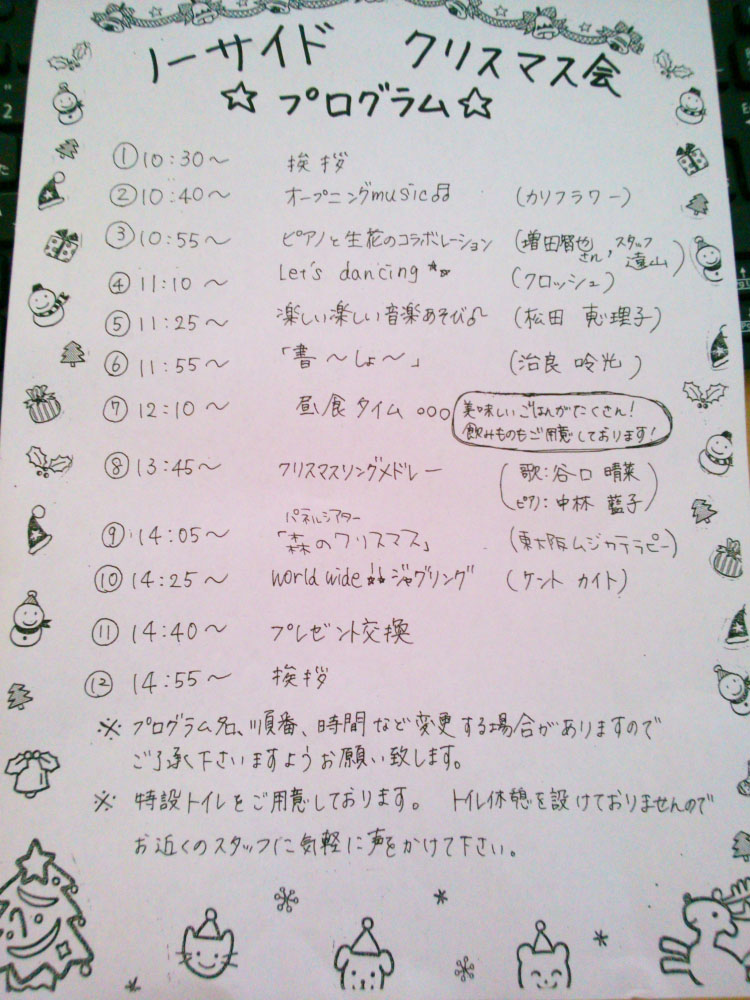 ノーサイド クリスマス会
☆プログラム☆
①10:30～ 挨拶
②10:40～ オープニングmusic♫ (カリフラワー)
③10:55～ ピアノと生花のコラボレーション (増田智也さん, スタッフ遠山)
④11:10～ Let's dancing (クロッシュ)
⑤11:25～ 楽しい楽しい音楽あそび♫ (松田 恵理子)
⑥11:55～ 「書～しょ～」 (治良 吟光)
⑦12:10～ 昼食タイム ○○○ 美味しいごはんがたくさん!
飲みものもご用意しております!
⑧13:45～ クリスマスソングメドレー (歌:谷口 晴菜
ピアノ:中林 藍子)
パネルシアター
⑨14:05～ 「森のクリスマス」 (東大阪ムジカテラピー)
⑩14:25～ world wide!! ジャグリング (ケント カイト)
⑪14:40～ プレゼント交換
⑫14:55～ 挨拶
※ プログラム名、順番、時間など変更する場合がありますので
ご了承下さいますようお願い致します。
※ 特設トイレをご用意しております。 トイレ休憩を設けておりませんので
お近くのスタッフに気軽に声をかけて下さい。